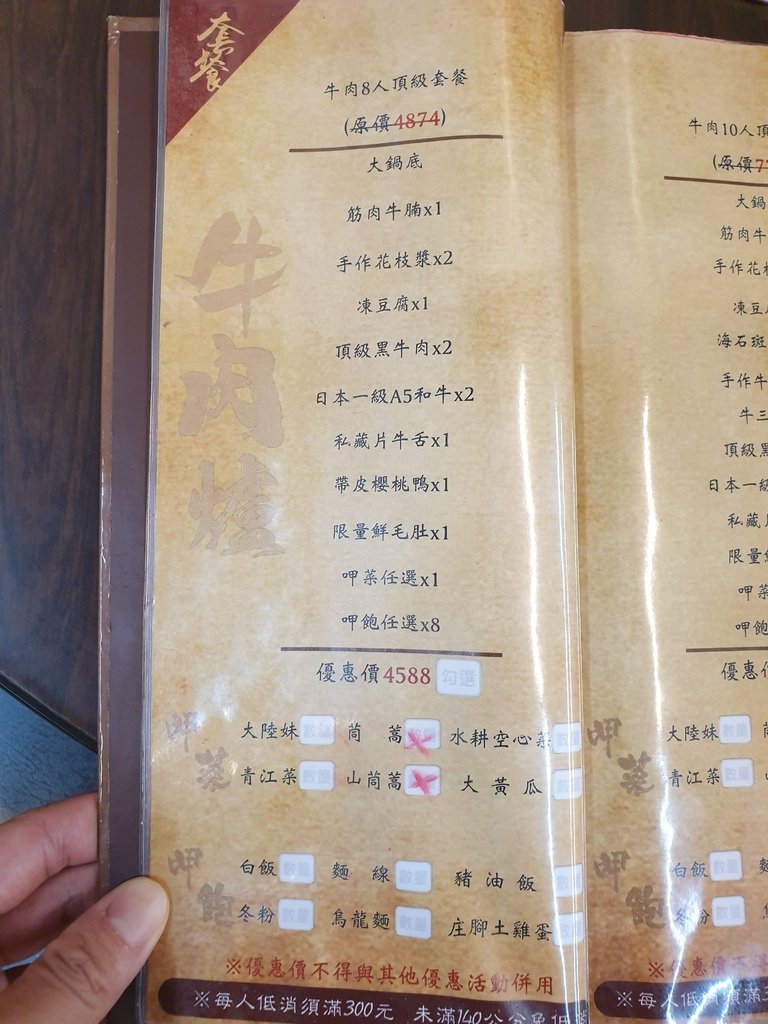 套餐
牛肉8人頂級套餐
(原價4874)
大鍋底
筋肉牛腩x1
手作花枝漿x2
凍豆腐x1
頂級黑牛肉x2
日本一級A5和牛x2
私藏片牛舌x1
帶皮櫻桃鴨x1
限量鮮毛肚x1
呷菜任選x1
呷飽任選x8
優惠價4588 勾選
牛肉爐
呷菜
大陸妹 數量 茼蒿 水耕空心菜 數量
青江菜 數量 山茼蒿 大黃瓜 數量
呷飽
白飯 數量 麵線 數量 豬油飯 數量
冬粉 數量 烏龍麵 數量 庄腳土雞蛋 數量
※優惠價不得與其他優惠活動併用
※每人低消須滿300元 未滿140公分免低消
牛肉10人頂
(原價77
大鍋
筋肉牛
手作花枝
凍豆腐
海石斑
手作牛
牛三
頂級黑
日本一級
私藏
限量鮮
呷菜
呷飽
優惠價
呷菜
大陸妹 數量
青江菜 數量 山
呷飽
白飯 數量 麵
冬粉 數量 烏
※優惠價不得
※每人低消須滿3